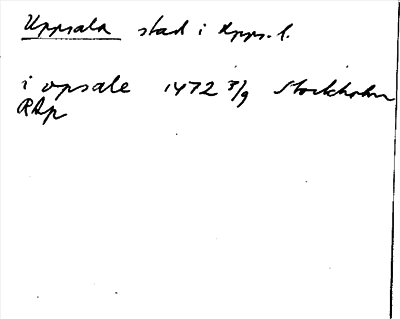 Uppsala stad i Upps. l.
i vpsale 1472 3/9 Stockholm
RAp